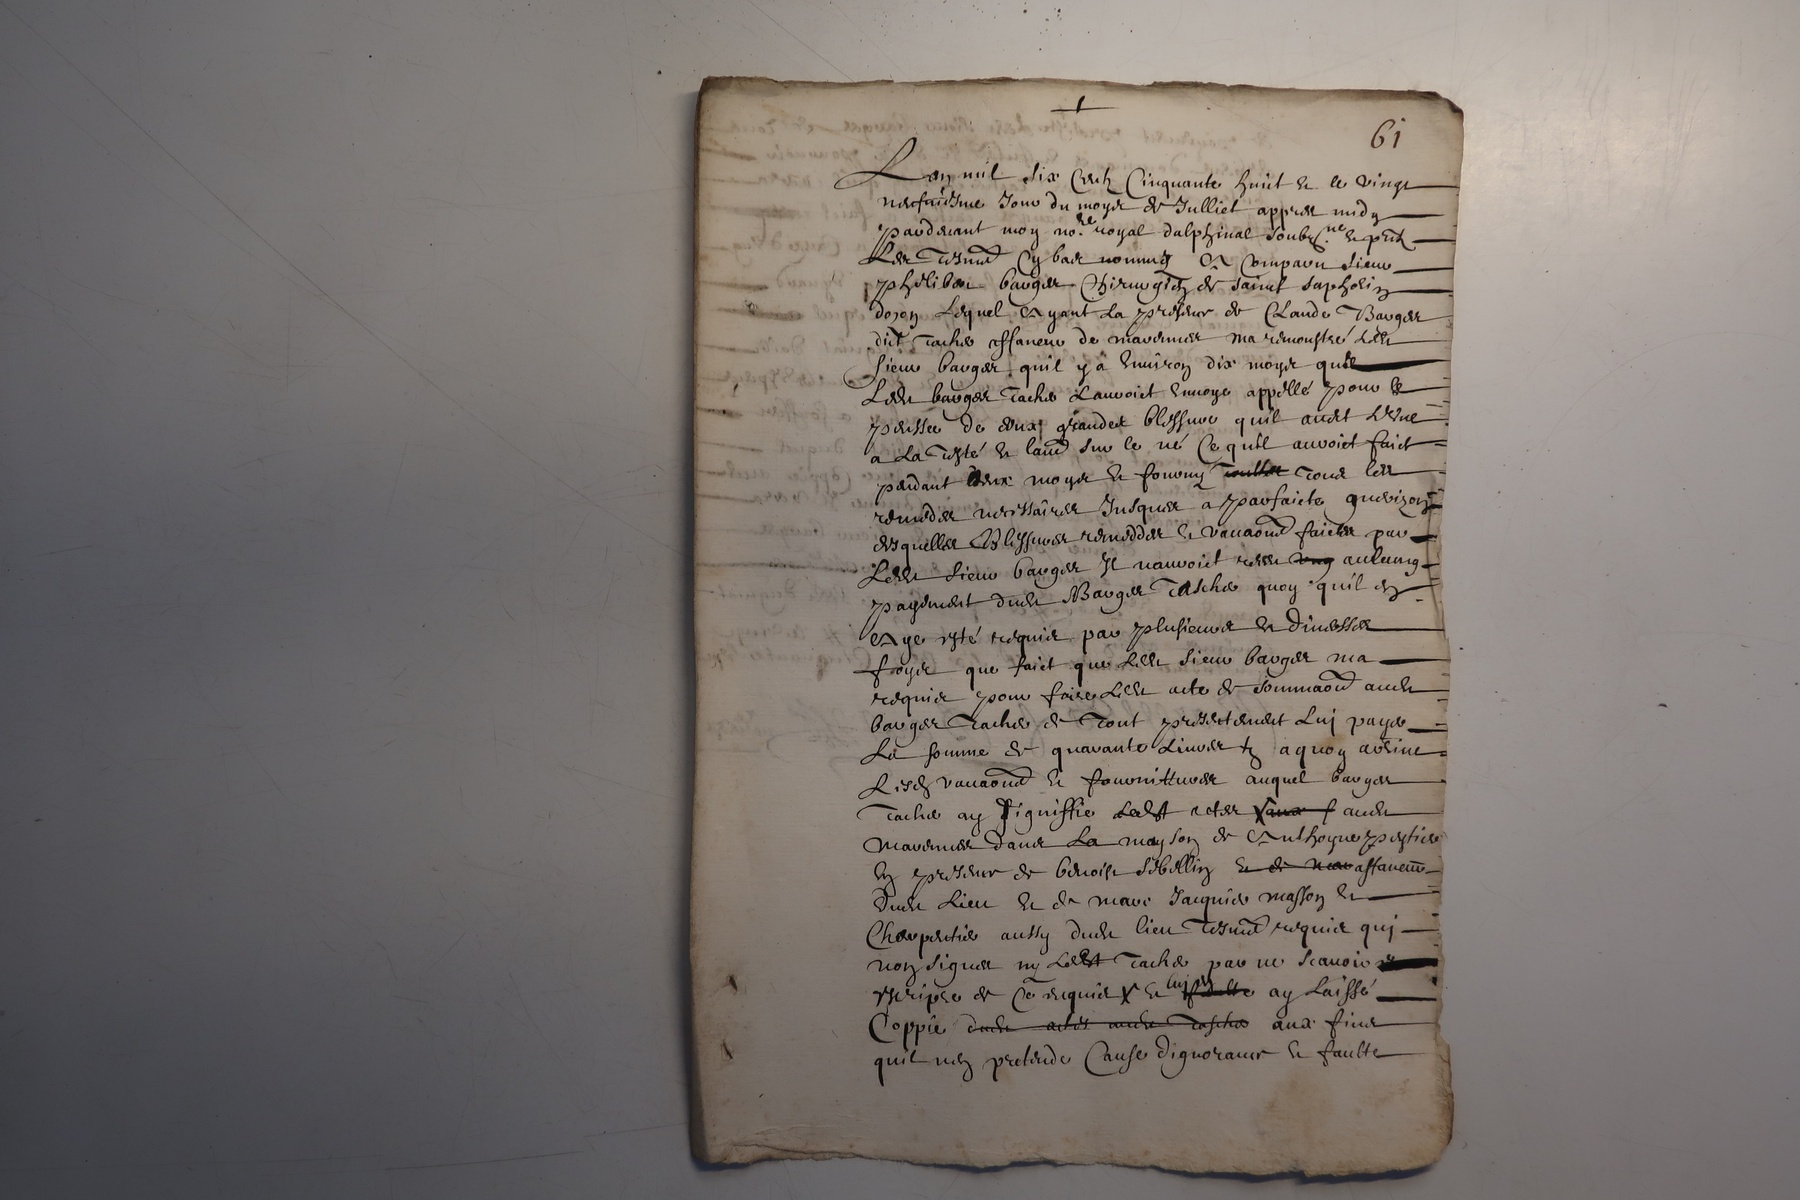 61
Lan mil six cent Cinquante huict et le vingt
neufviesme Jour du moys de Julliet appres midy
pardevant moy no.re royal dalphinal soub.ne et pnts
Les tesmoingz Cy bas nommes A Comparu sieur
philiber bauger Chirurgien de saint saphorin
dozon Lequel Ayant La presence de Claude Bauger
dict tache affaneur de marennes ma remonstré Led
sieur bauger quil y a Environ dix moys que
Led bauger tache Lauroict Envoye appellé pour le
penser de deux grandes blessure quil avet
a La testé et laut sur le né Ce quil auroict faict
pendant deux moys et fourny tous les
remedes necessaires Jusques a parfaicte guerizon
desquelles Blessures remeddes et vacaons faictes par
Led sieur bauger Il nauroict aulcung
payement dud Bauger tasche quoy quil en
Aye esté requis par plusieurs et diverses
foys que faict que Led sieur bauger ma
requis pour faire Led acte de sommaon aud
bauger tache de tout presentement Luj payer
La somme de quarante Livres tz a quoy arrive
Lesd vacaons et fournittures auquel bauger
tache ay signiffie acter aud
marennes dans La mayson de Anthoyne
En presence de benoist sibellin et de affaneur
dud Lieu et de marc Jacquier masson et
Charpentier aussy dud lieu tesmoingz requis quj
non signes ny Led tache par ne scavoir
escripre de Ce enquis et luj ay Laissé
Coppie dud acter aud tasche aux fins
quil nen pretende Cause dignorance et faulte